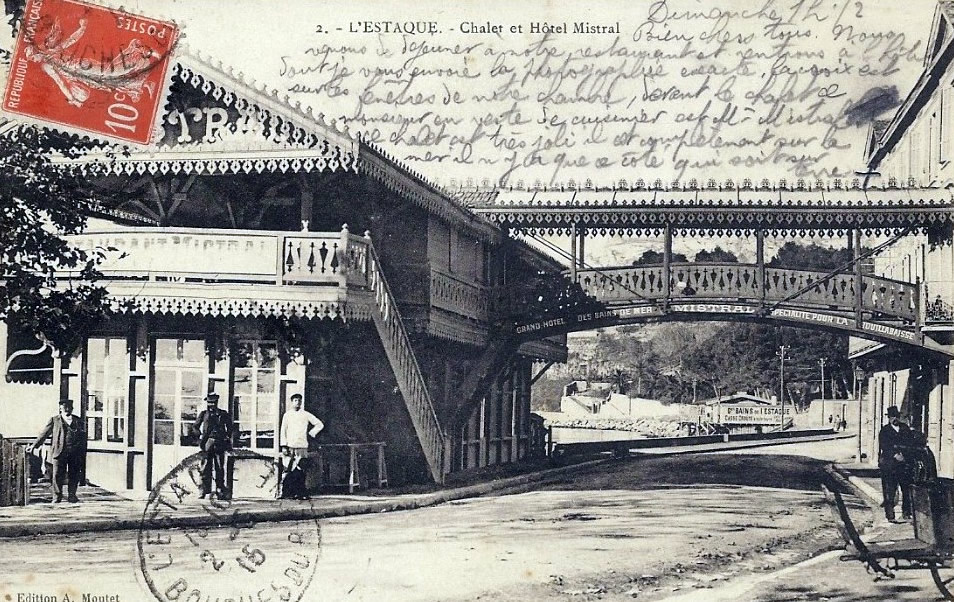 2. - L'ESTAQUE. - Chalet et Hôtel Mistral
Dimanche 1h 1/2
Bien chers tous. Nous
venons de déjeuner à notre restaurant et rentrons à
dont je vous envoie la exacte, la croix est
sur les fenêtres de notre chambre, devant le chalet de
monsieur en veste de cuisinier est Mr Mistral
le chalet est très joli il est complètement sur la
mer il n'y a que ce côté qui soit sur
terre
REPUBLIQUE FRANÇAISE
POSTES
10c
STRAL
RESTAURANT MISTRAL
GRAND HOTEL DES BAINS DE MER MISTRAL SPECIALITÉ POUR LA BOUILLABAISSE
Gds BAINS DE L'ESTAQUE
L'ESTAQUE
2 15
BOUCHES DU R
Edition A. Moutet